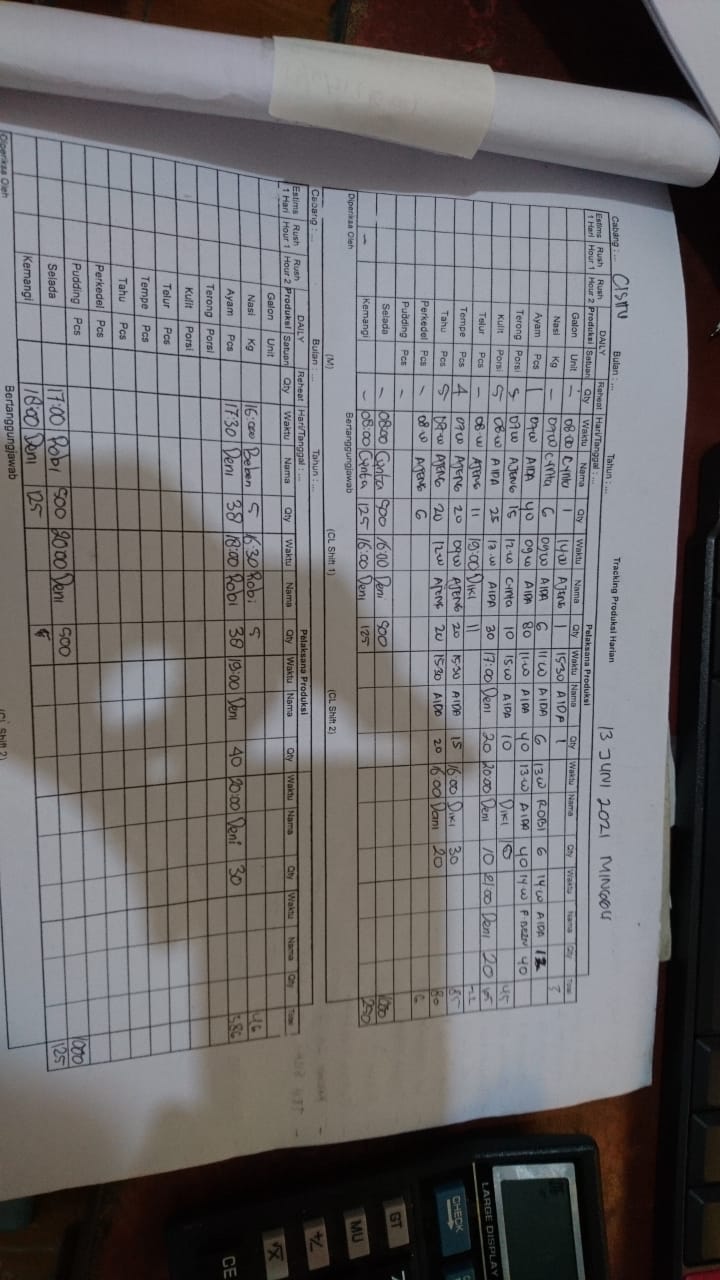 Cabang : ... CISITU Bulan : ... Tahun : ... Tracking Produksi Harian 13 JUNI 2021 MINGGU
Estims 1 Hari Rush Hour 1 Rush Hour 2 DAILY Produksi Satuan Reheat Qty Hari/Tanggal : ... Pelaksana Produksi
Waktu Nama Qty Waktu Nama Qty Waktu Nama Qty Waktu Nama Qty Waktu Nama Qty Total
Galon Unit - 08.00 1 14.00 AJENG 1 15.30 AIDA 1
Nasi Kg - 07.00 6 09.00 AIDA 6 11.00 AIDA 6 13.00 ROBI 6 14.00 AIDA 12
Ayam Pcs 1 07.00 AIDA 40 09.00 AIDA 80 11.00 AIDA 40 13.00 AIDA 40 14.00 40
Terong Porsi 5 07.00 AJENG 15 12.00 Cinta 10 15.00 AIDA 10 DIKI 45
Kulit Porsi 5 08.00 AIDA 25 13.00 AIDA 30 17:00 Deni 20 20:00 Deni 10 21:00 Deni 20
Telur Pcs - 08.00 AJENG 11 19:00 DIKI 11 22
Tempe Pcs 4 07.00 AJENG 20 09.00 AJENG 20 15.30 AIDA 15 16:00 DIKI 30 85
Tahu Pcs 5 07.00 AJENG 20 12.00 AJENG 20 15.30 AIDA 20 16:00 Deni 20 80
Perkedel Pcs - 08.00 AJENG 6 6
Pudding Pcs
Selada - 08:00 Cynta 500 16:00 Deni 500 1000
- Kemangi - 08:00 Cynta 125 16:00 Deni 125 250
Diperiksa Oleh Bertanggungjawab
(M) (CL Shift 1) (CL Shift 2)
Cabang : ... Bulan : ... Tahun : ...
Estims 1 Hari Rush Hour 1 Rush Hour 2 DAILY Produksi Satuan Reheat Qty Hari/Tanggal : ... Pelaksana Produksi
Waktu Nama Qty Waktu Nama Qty Waktu Nama Qty Waktu Nama Qty Waktu Nama Qty Total
Galon Unit
Nasi Kg 16:00 Beben 5 16:30 Robi 5 46
Ayam Pcs 17:30 Deni 38 18:00 Robi 38 19:00 Deni 40 20:00 Deni 30 386
Terong Porsi
Kulit Porsi
Telur Pcs
Tempe Pcs
Tahu Pcs
Perkedel Pcs
Pudding Pcs 1000
Selada 17:00 Robi 500 20:00 Deni 500 125
Kemangi 18:00 Deni 125
Diperiksa Oleh Bertanggungjawab (CL Shift 2)
LARGE DISPLAY
CHECK
GT
MU
+/-
√X
CE